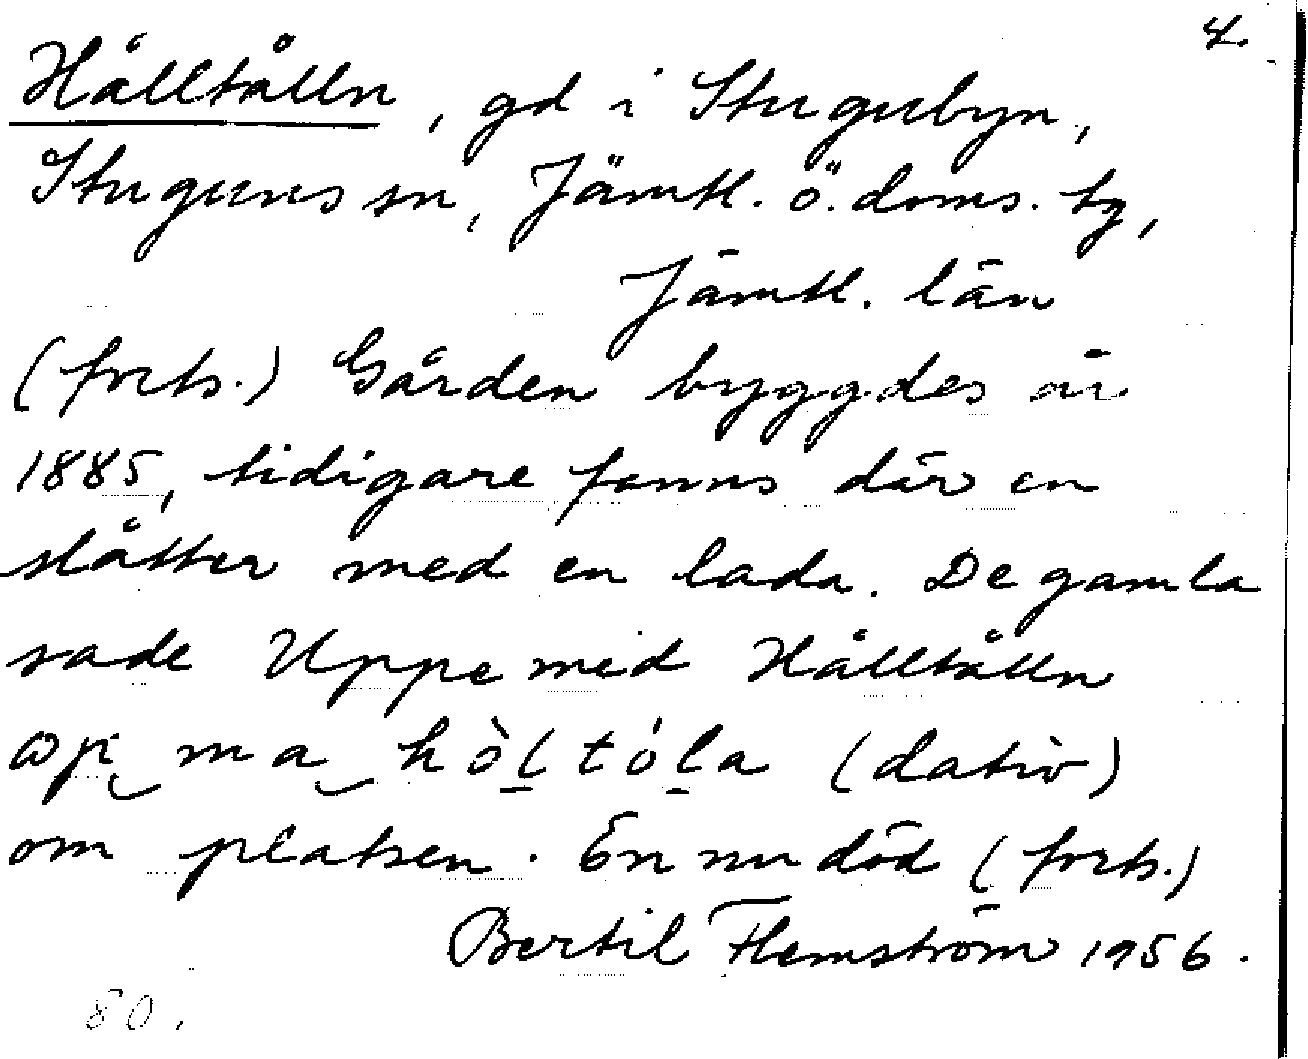 4.
Hålltålln, gd i Stugubyn,
Stuguns sn, Jämtl. ö. doms. tg,
Jämtl. län
(forts.) Gården byggdes år
1885, tidigare fanns där en
slåtter med en lada. De gamla
sade Uppe mid Hålltålln
ma hòltóla (dativ)
om platsen. En nu död (forts.)
Bertil Flemström 1956.
80.